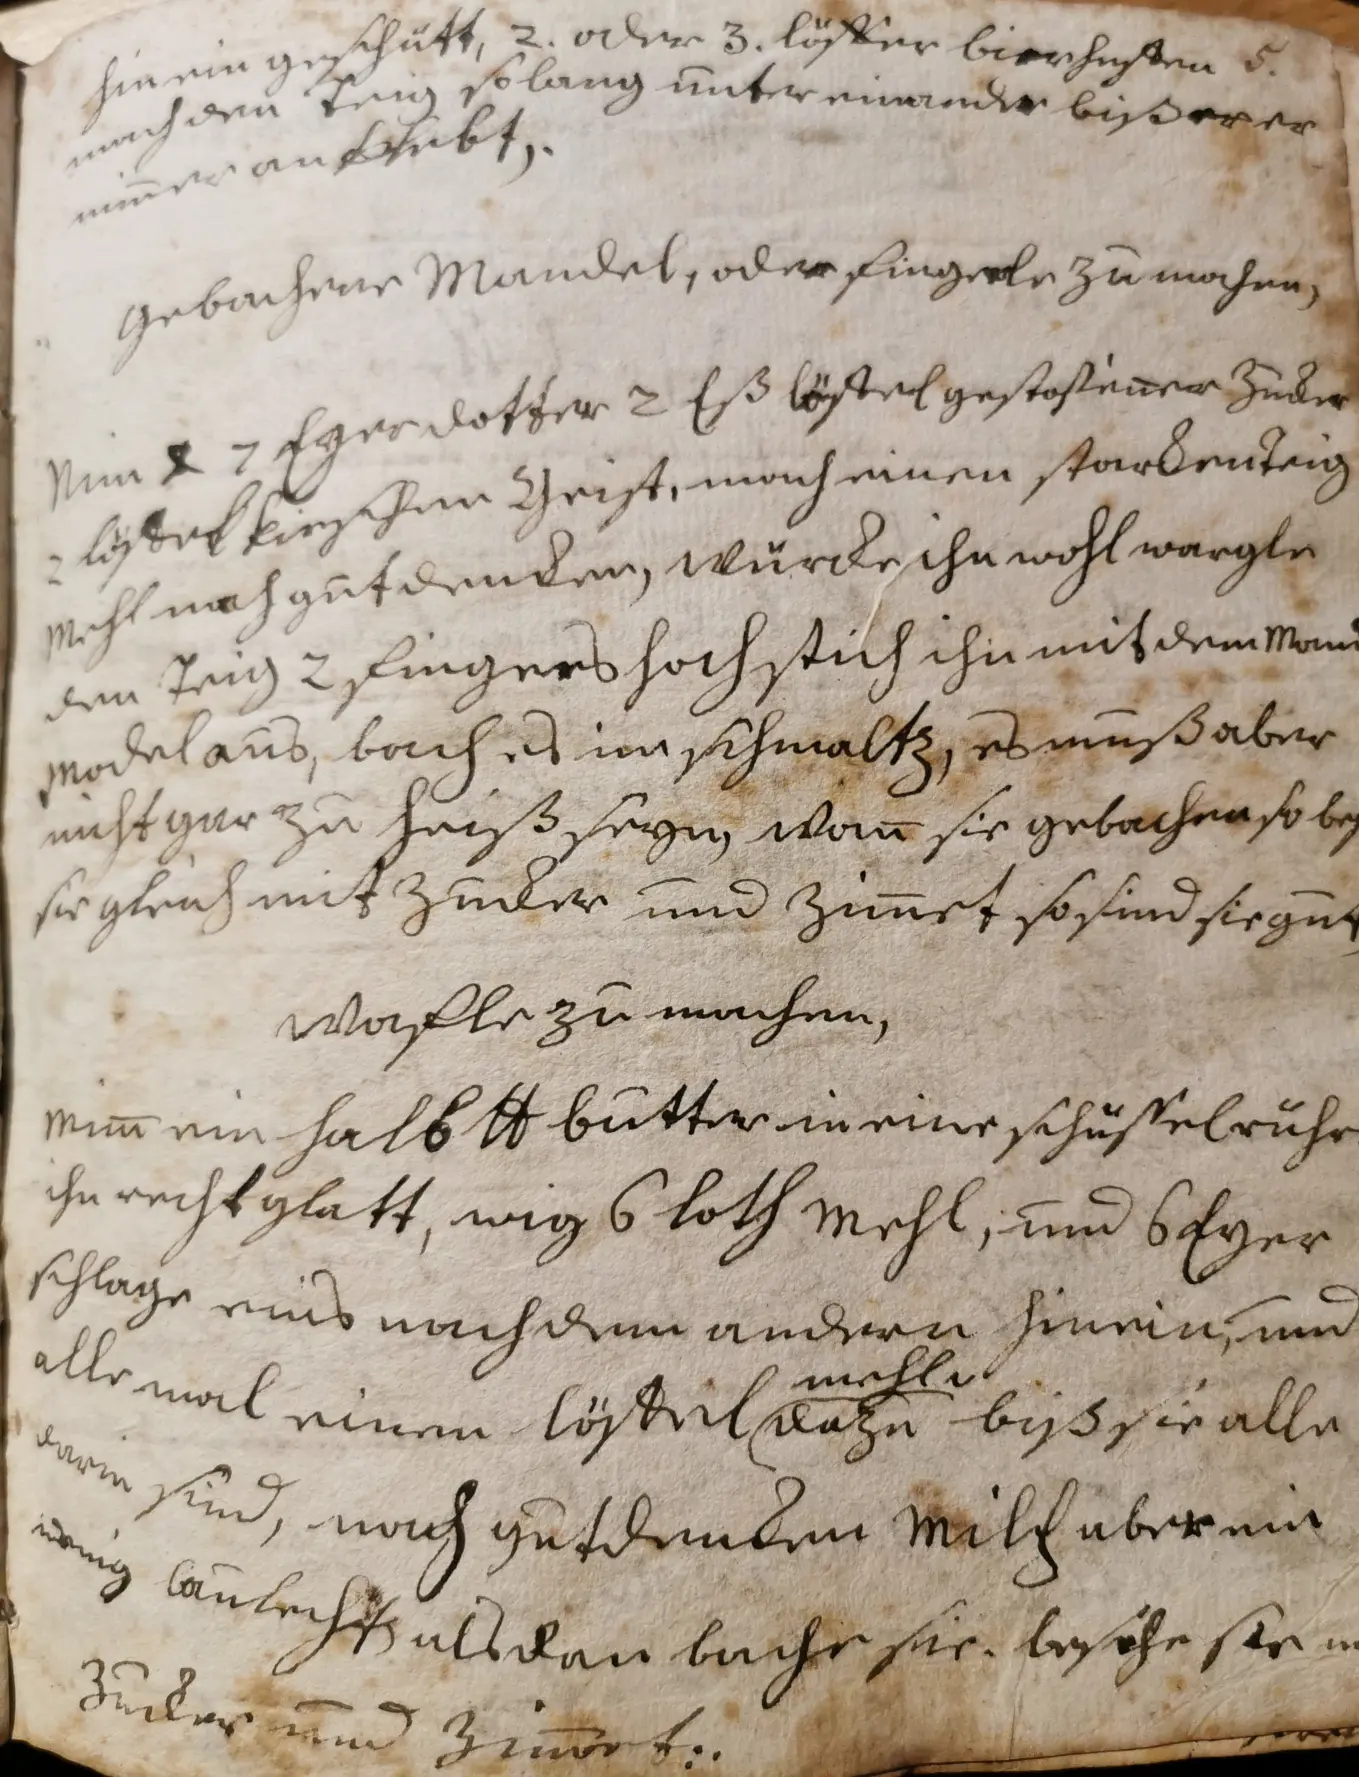 hinein geschütt, 2. oder 3. löffer bierheffen 5.
mach den Teig so lang unter einander biß er er
nim̅er anklebt,.
Gebachene Mandel, oder fingerle zu machen,
Nim 7 Eyerdotter 2 Eß löffel gestoßener Zucker
2 löffel kirschen Geist, mach einen starcken Teig
Mehl nach gutdencken, würcke ihn wohl wargle
den Teig 2 fingers hoch stich ihn mit dem Mand
Model aus, bach es im schmaltz, es muß aber
nicht gar zu heiß seyn, wan̅ sie gebachen so beß
sie gleich mit Zucker und Zim̅et so sind sie gut
Wafle zu machen,
Nim̅ ein halb ℔ butter in eine schüssel rühr
ihn recht glatt, wig 6 loth Mehl, und 6 Eyer
schlage eins nach dem andern hinein, und
mehl
alle mal einen löffel dazu biß sie alle
darin sind, nach gutdencken Milch aber ein
wenig laulecht alsdan bache sie. besehe sie m
Zucker und Zim̅et:.